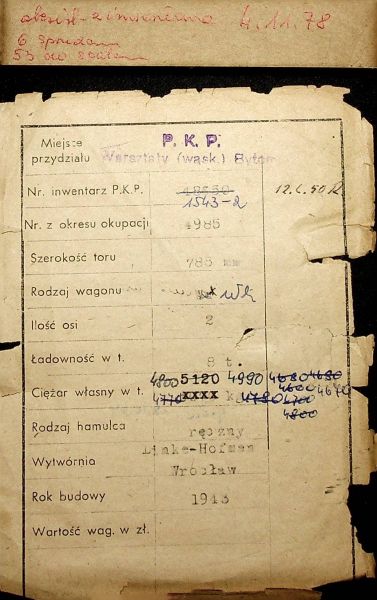 z inwentarza 4.11.78
6
53 do
Miejsce przydziału P. K. P.
Warsztaty (wąsk.) Bytom
Nr. inwentarz P.K.P. 48550 12.6.50
1543-2
Nr. z okresu okupacji 4985
Szerokość toru 785 mm
Rodzaj wagonu Wk
Ilość osi 2
Ładowność w t. 8 t.
4800 5120 4990 4680 4680
Ciężar własny w t. 4770 xxxx k 4780 4600 4700 4670
4800
Rodzaj hamulca ręczny
Wytwórnia Linke-Hofman
Wrocław
Rok budowy 1943
Wartość wag. w zł.